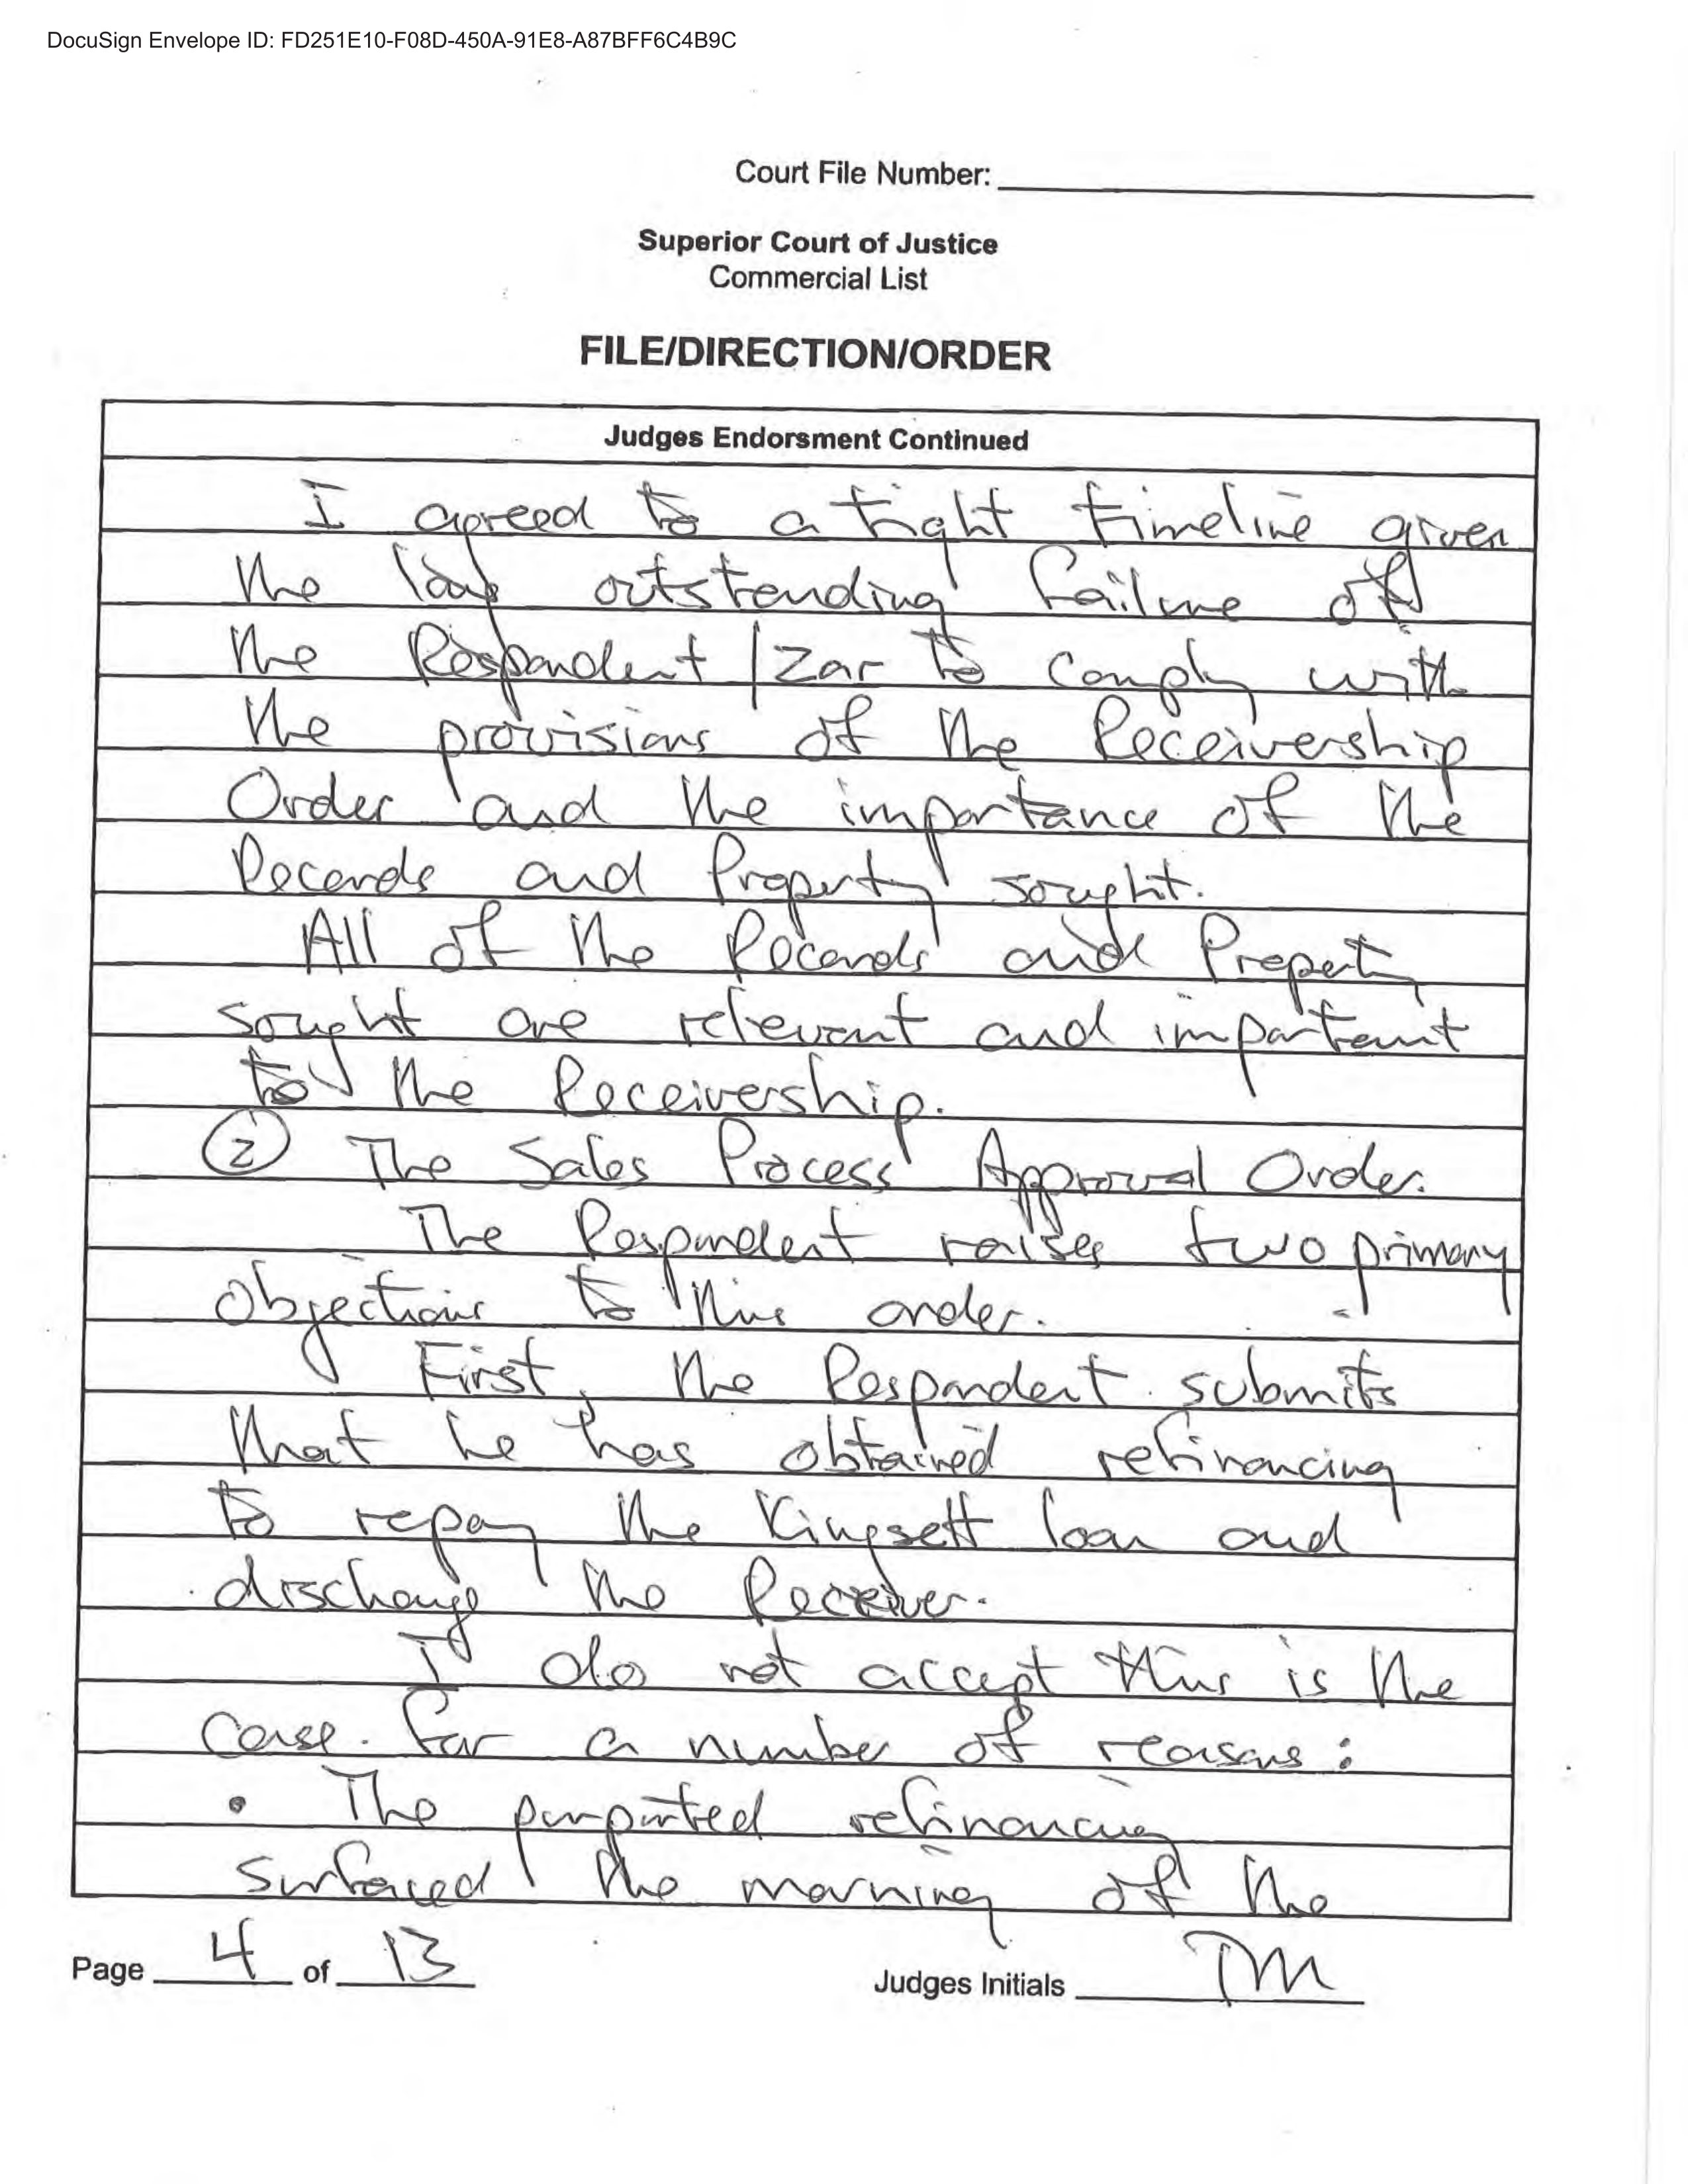 DocuSign Envelope ID: FD251E10-F08D-450A-91E8-A87BFF6C4B9C
Court File Number:
Superior Court of Justice
Commercial List
FILE/DIRECTION/ORDER
Judges Endorsment Continued
I agreed to a tight timeline given
the long outstanding failure of
the Respondent / Zar to comply with
the provisions of the Receivership
Order and the importance of the
Records and Property sought.
All of the Records and Property
sought are relevant and important
to the Receivership.
② The Sales Process Approval Order.
The Respondent raises two primary
objections to this order.
First, the Respondent submits
that he has obtained refinancing
to repay the Kingsett loan and
discharge the Receiver.
I do not accept this is the
case. For a number of reasons:
• The purported refinancing
surfaced the morning of the
Page 4 of 13
Judges Initials